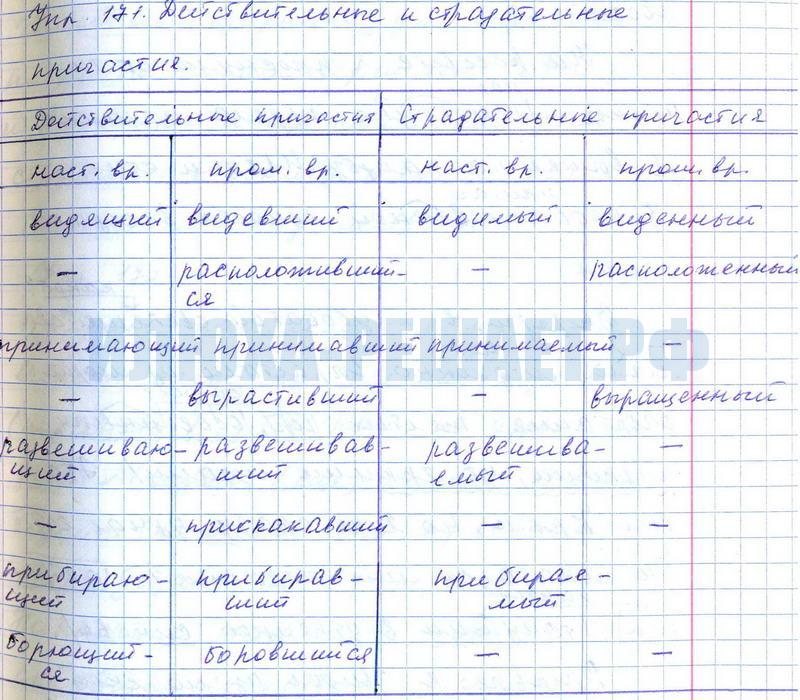 Упр. 171. Действительные и страдательные
причастия.
Действительные причастия Страдательные причастия
наст. вр. прош. вр. наст. вр. прош. вр.
видящий видевший видимый виденный
— расположивший- — расположенный
ся
ИЛЮХА РЕШАЕТ.РФ
принимающий принимавший принимаемый —
— вырастивший — выращенный
развешиваю- развешивав- развешива- —
щий ший емый
— прискакавший — —
прибираю- прибирав- прибирае-
щий ший мый
борющий- боровшийся — —
ся